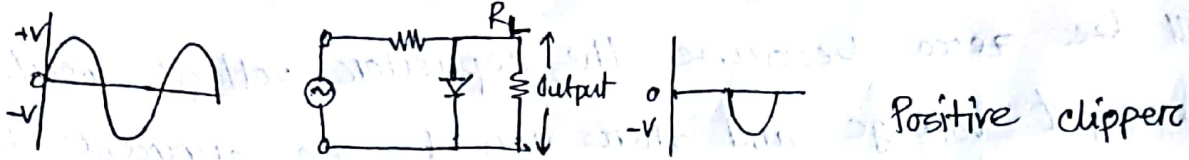 +V
0
-V
RL
Output
0
-V
Positive clipperc